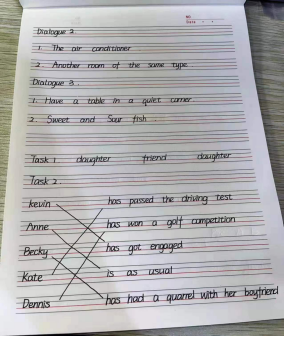 NO.
Date
Dialogue 2
1. The air conditioner
2. Another room of the same type
Dialogue 3.
1. Have a table in a quiet corner
2. Sweet and Sour fish.
Task 1 daughter friend daughter
Task 2.
Kevin has passed the driving test
Anne has won a golf competition
Becky has got engaged
Kate is as usual
Dennis has had a quarrel with her boyfriend